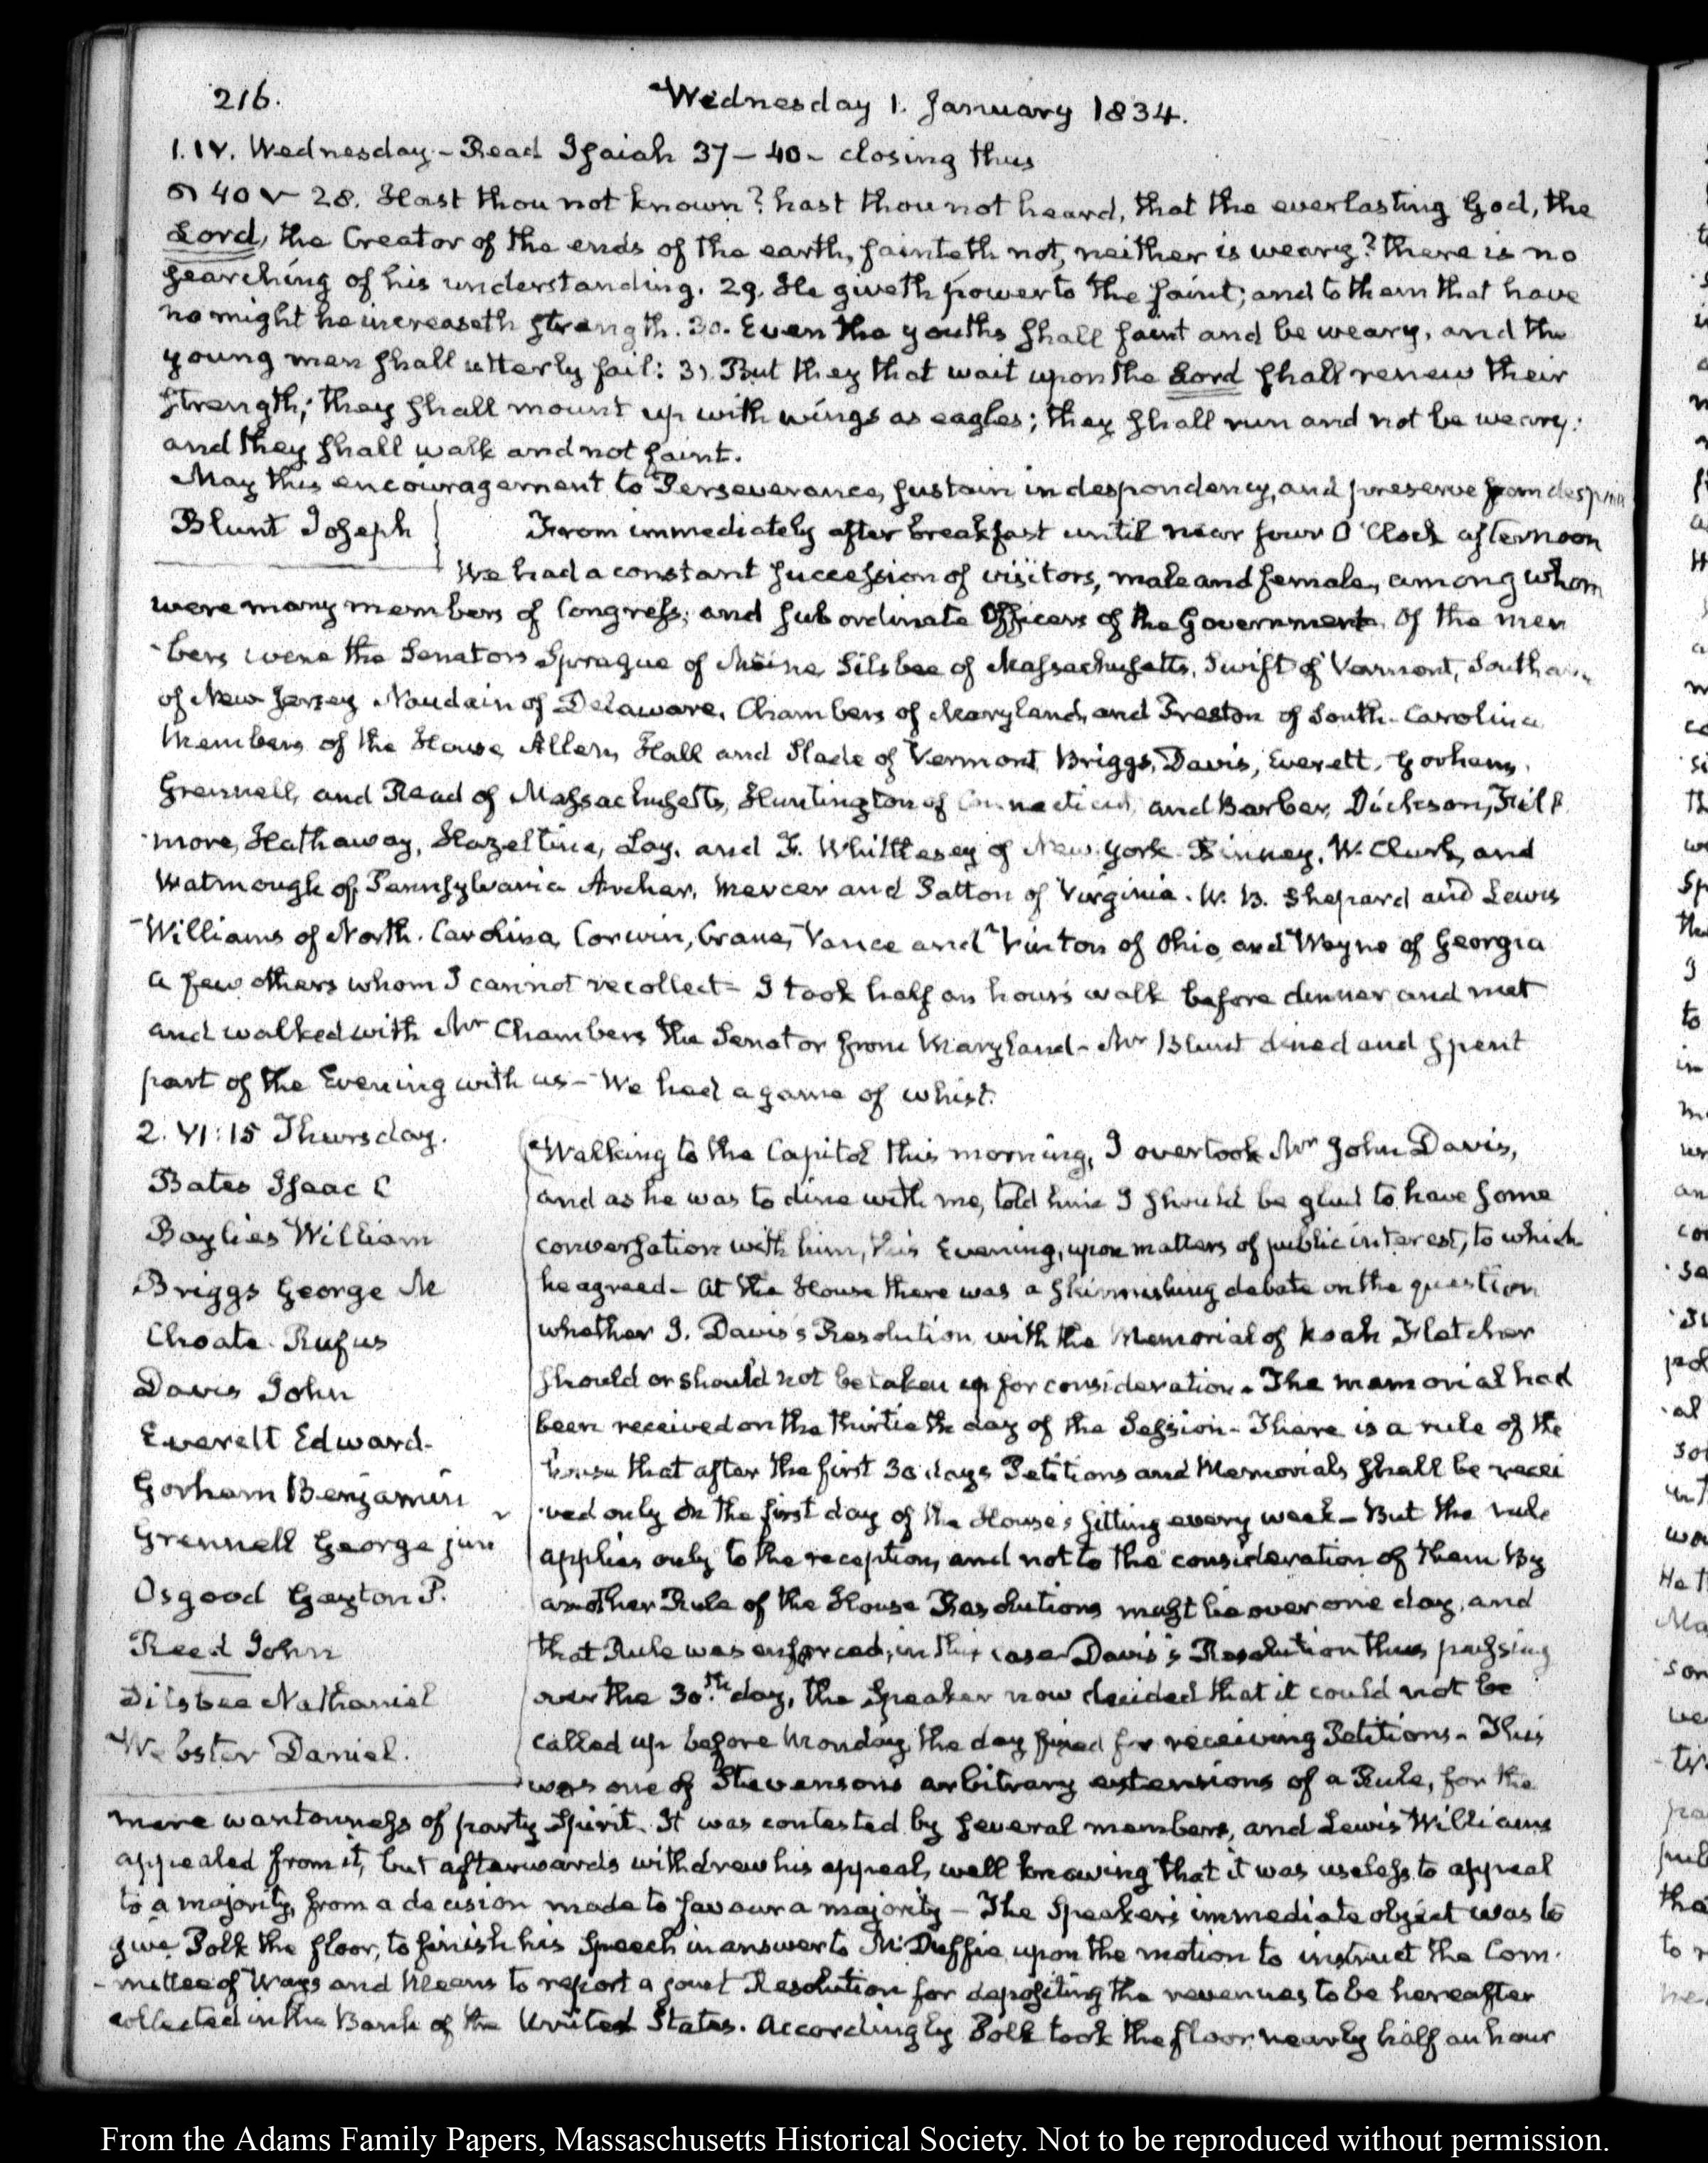 216.
Wednesday 1. January 1834.
1. IV. Wednesday - Read Isaiah 37 - 40 - closing thus
40 v 28. Hast thou not known? hast thou not heard, that the everlasting God, the
Lord, the Creator of the ends of the earth, fainteth not, neither is weary? there is no
searching of his understanding. 29. He giveth power to the faint; and to them that have
no might he increaseth strength. 30. Even the youths shall faint and be weary, and the
young men shall utterly fail: 31. But they that wait upon the Lord shall renew their
strength; they shall mount up with wings as eagles; they shall run and not be weary:
and they shall walk and not faint.
May this encouragement to Perseverance, sustain in despondency, and preserve from despair
Blunt Joseph
From immediately after breakfast until near four O'Clock afternoon
We had a constant succession of visitors, male and female, among whom
were many members of Congress; and subordinate Officers of the Government. Of the mem
-bers were the Senators Sprague of Maine, Silsbee of Massachusetts, Swift of Vermont, Southard
of New Jersey Naudain of Delaware, Chambers of Maryland, and Preston of South-Carolina
Members of the House Allen, Hall and Slade of Vermont Briggs, Davis, Everett, Gorham,
Grennell, and Reed of Massachusetts, Huntington of Connecticut, and Barber, Dickson, Fill
-more, Hathaway, Hazeltine, Lay, and F. Whittlesey of New-York Binney, W. Clark, and
Watmough of Pennsylvania Archer, Mercer and Patton of Virginia. W. B. Shepard and Lewis
Williams of North-Carolina, Corwin, Crane, Vance and Vinton of Ohio and Wayne of Georgia
a few others whom I cannot recollect - I took half an hour's walk before dinner and met
and walked with Mr Chambers the Senator from Maryland - Mr Blunt dined and spent
part of the Evening with us - We had a game of whist.
2. VI:15 Thursday.
Bates Isaac C
Baylies William
Briggs George N
Choate Rufus
Davis John
Everett Edward-
Gorham Benjamin
Grennell George junr
Osgood Gayton P.
Reed John
Silsbee Nathaniel
Webster Daniel.
Walking to the Capitol this morning, I overtook Mr John Davis,
and as he was to dine with me, told him I should be glad to have some
conversation with him, this Evening, upon matters of public interest, to which
he agreed - At the House there was a skirmishing debate on the question
whether J. Davis's Resolution with the Memorial of Noah Fletcher
should or should not be taken up for consideration. The memorial had
been received on the thirtieth day of the Session - There is a rule of the
house that after the first 30 days Petitions and Memorials shall be recei
-ved only on the first day of the House's sitting every week - But the rule
applies only to the reception, and not to the consideration of them By
another Rule of the House Resolutions must lie over one day, and
that Rule was enforced, in this case Davis's Resolution thus passing
over the 30th. day, the Speaker now decided that it could not be
called up before Monday, the day fixed for receiving Petitions - This
was one of Stevenson's arbitrary extensions of a Rule, for the
mere wantonness of party Spirit. It was contested by several members, and Lewis Williams
appealed from it, but afterwards withdrew his appeal, well knowing that it was useless to appeal
to a majority, from a decision made to favour a majority - The Speaker's immediate object was to
give Polk the floor, to finish his Speech in answer to McDuffie upon the motion to instruct the Com-
-mittee of Ways and Means to report a joint Resolution for depositing the revenues to be hereafter
collected in the Bank of the United States. Accordingly Polk took the floor nearly half an hour
From the Adams Family Papers, Massaschusetts Historical Society. Not to be reproduced without permission.